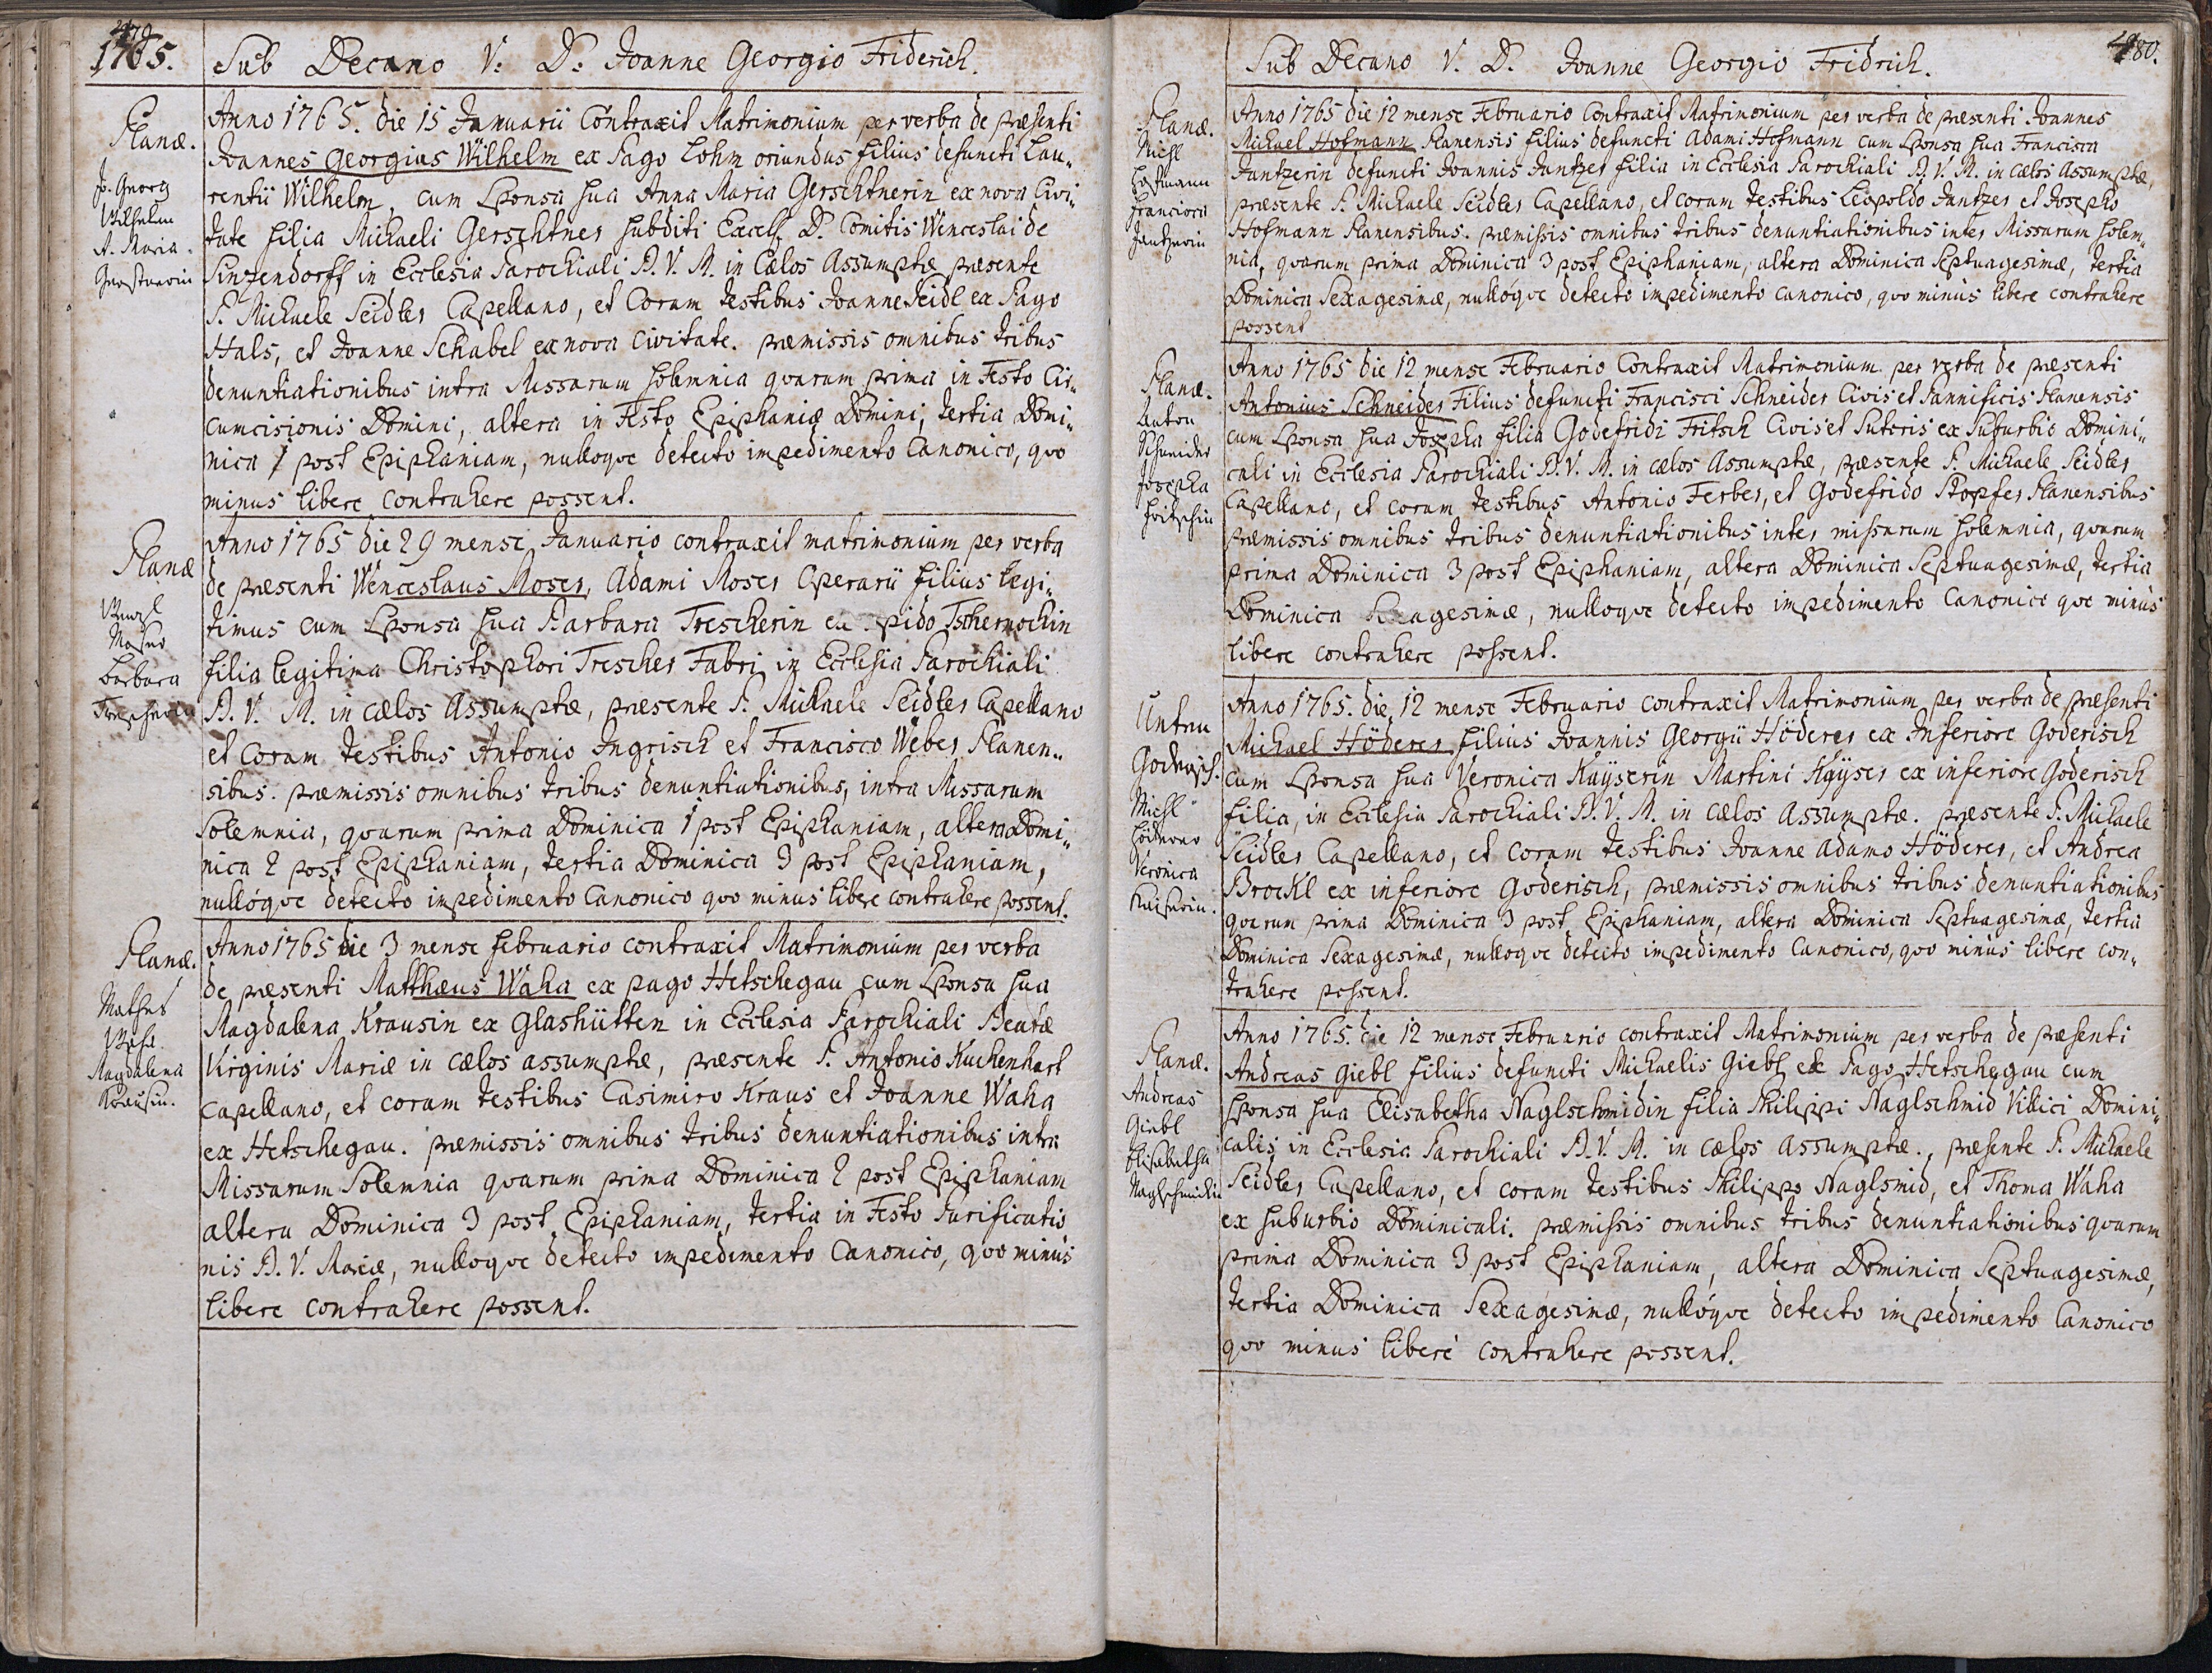 479
1765.
Sub Decano V. D. Joanne Georgio Friderich.
Planæ.
Jo. Georg
Wilhelm
A. Maria
Anno 1765. die 15 Januarii Contraxit Matrimonium per verba de præsenti
Joannes Georgius Wilhelm ex Pago Lohm oriundus filius defuncti Lau„
rentii Wilhelm, cum Sponsa sua Anna Maria Gerschtnerin ex nova Civi„
tate filia Michaeli Gerschtner subditi Excell. D. Comitis Wenceslai de
Sinzendorff in Ecclesia Parochiali B. V. M. in Cælos Assumptæ præsente
P. Michaele Seidler Capellano, et Coram testibus Joanne Seidl ex Pago
Hals, et Joanne Schabel ex nova Civitate. præmissis omnibus tribus
denuntiationibus intra Missarum solemnia quarum prima in Festo Cir„
cumcisionis Domini, altera in Festo Epiphaniæ Domini, tertia Domi„
nica 1 post Epiphaniam, nulloque detecto impedimento Canonico, quo
minus libere contrahere possent.
Planæ
Wenzl
Moser
Barbara
Anno 1765 die 29 mense Januario contraxit matrimonium per verba
de præsenti Wenceslaus Moser, Adami Moser Operarii filius legi„
timus cum Sponsa sua Barbara Trescherin ex opido Tschernochin
filia legitima Christophori Trescher Fabri in Ecclesia Parochiali
B. V. M. in cælos Assumptæ, præsente P. Michaele Seidler Capellano
et Coram testibus Antonio Ingrisch et Francisco Weber Planen„
sibus. præmissis omnibus tribus denuntiationibus, intra Missarum
Solemnia, quarum prima Dominica 1 post Epiphaniam, altera Domi„
nica 2 post Epiphaniam, tertia Dominica 3 post Epiphaniam,
nullóque detecto impedimento Canonico quo minus libere contrahere possent.
Planæ.
Mathes
Waha
Magdalena
Krausin.
Anno 1765 die 3 mense februario contraxit Matrimonium per verba
de præsenti Matthæus Waha ex pago Hetschegau cum Sponsa sua
Magdalena Krausin ex Glashütten in Ecclesia Parochiali Beatæ
Virginis Mariæ in cælos assumptæ, præsente P. Antonio Kuchenhart
Capellano, et coram testibus Casimiro Kraus et Joanne Waha
ex Hetschegau. præmissis omnibus tribus denuntiationibus intra
Missarum Solemnia quarum prima Dominica 2 post Epiphaniam
altera Dominica 3 post Epiphaniam, tertia in Festo Purificatio
nis B. V. Mariæ, nulloque detecto impedimento Canonico, quo minùs
libere contrahere possent.
480.
Sub Decano V. D. Joanne Georgio Fridrich.
Planæ.
Michl
Hofmann
Francisca
Jantzerin
Anno 1765 die 12 mense Februario Contraxit Matrimonium per verba de præsenti Joannes
Michael Hofmann Planensis filius defuncti Adami Hofmann cum Sponsa sua Francisca
Jantzerin defuncti Joannis Jantzer filia in Ecclesia Parochiali B. V. M. in cælos Assumptæ,
præsente P. Michaele Seidler Capellano, et coram testibus Leopoldo Jantzer et Josepho
Hofmann Planensibus. præmissis omnibus tribus denuntiationibus inter Missarum solem„
nia, quarum prima Dominica 3 post Epiphaniam, altera Dominica Septuagesimæ, tertia
Dominica Sexagesimæ, nullóque detecto impedimento canonico, quo minùs libere contrahere
possent
Planæ.
Anton
Schneider
Josepha
Fritschin
Anno 1765 die 12 mense Februario Contraxit Matrimonium per verba de præsenti
Antonius Schneider Filius defuncti Francisci Schneider Civis et Pannificis Planensis
cum Sponsa sua Josepha filia Godefridi Fritsch Civis et Sutoris ex Suburbio Domini„
cali in Ecclesia Parochiali B. V. M. in cælos Assumptæ, præsente P. Michaele Seidler
Capellano, et coram testibus Antonio Ferber, et Godefrido Stopfer Planensibus
præmissis omnibus tribus denuntiationibus inter missarum solemnia, quarum
prima Dominica 3 post Epiphaniam, altera Dominica Septuagesimæ, tertia
Dominica Sexagesimæ, nulloque detecto impedimento canonico quo minùs
libere contrahere possent.
Untern
Godrisch.
Michl
Höderer
Veronica
Kaiserin.
Anno 1765. die 12 mense Februario contraxit Matrimonium per verba de præsenti
Michael Höderer filius Joannis Georgii Höderer ex Inferiore Goderisch
cum Sponsa sua Veronica Kaÿserin Martini Kaÿser ex inferiore Goderisch
filia, in Ecclesia Parochiali B. V. M. in cælos Assumptæ. præsente P. Michaele
Seidler Capellano, et coram testibus Joanne Adamo Höderer, et Andrea
Brockl ex inferiore Goderisch, præmissis omnibus tribus denuntiationibus
quarum prima Dominica 3 post Epiphaniam, altera Dominica Septuagesimæ, tertia
Dominica Sexagesimæ, nulloque detecto impedimento Canonico, quo minùs libere con„
trahere possent.
Planæ.
Andreas
Giebl
Elisabetha
Naglschmidin
Anno 1765. die 12 mense Februario contraxit Matrimonium per verba de præsenti
Andreas Giebl filius defuncti Michaelis Giebl ex Pago Hetschegau cum
Sponsa sua Elisabetha Naglschmidin filia Philippi Naglschmid Villici Domini„
calis in Ecclesia Parochiali B. V. M. in cælos assumptæ., præsente P. Michaele
Seidler Capellano, et coram testibus Philippo Naglsmid, et Thoma Waha
ex suburbio Dominicali. præmissis omnibus tribus denuntiationibus quarum
prima Dominica 3 post Epiphaniam, altera Dominica Septuagesimæ,
tertia Dominica Sexagesimæ, nullóque detecto impedimento Canonico
quo minus liberè contrahere possent.